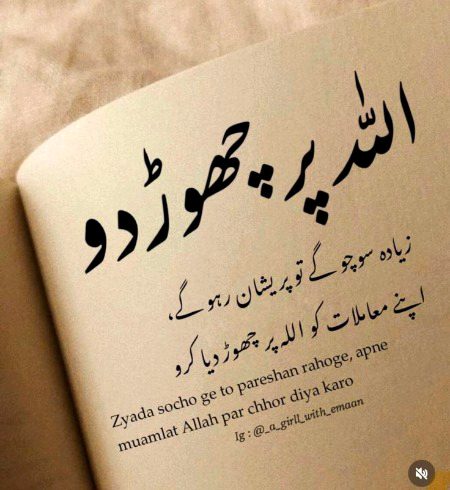 اللہ پر چھوڑ دو
زیادہ سوچو گے تو پریشان رہو گے،
اپنے معاملات کو اللہ پر چھوڑ دیا کرو
Zyada socho ge to pareshan rahoge, apne
muamlat Allah par chhor diya karo
Ig : @_a_girll_with_emaan